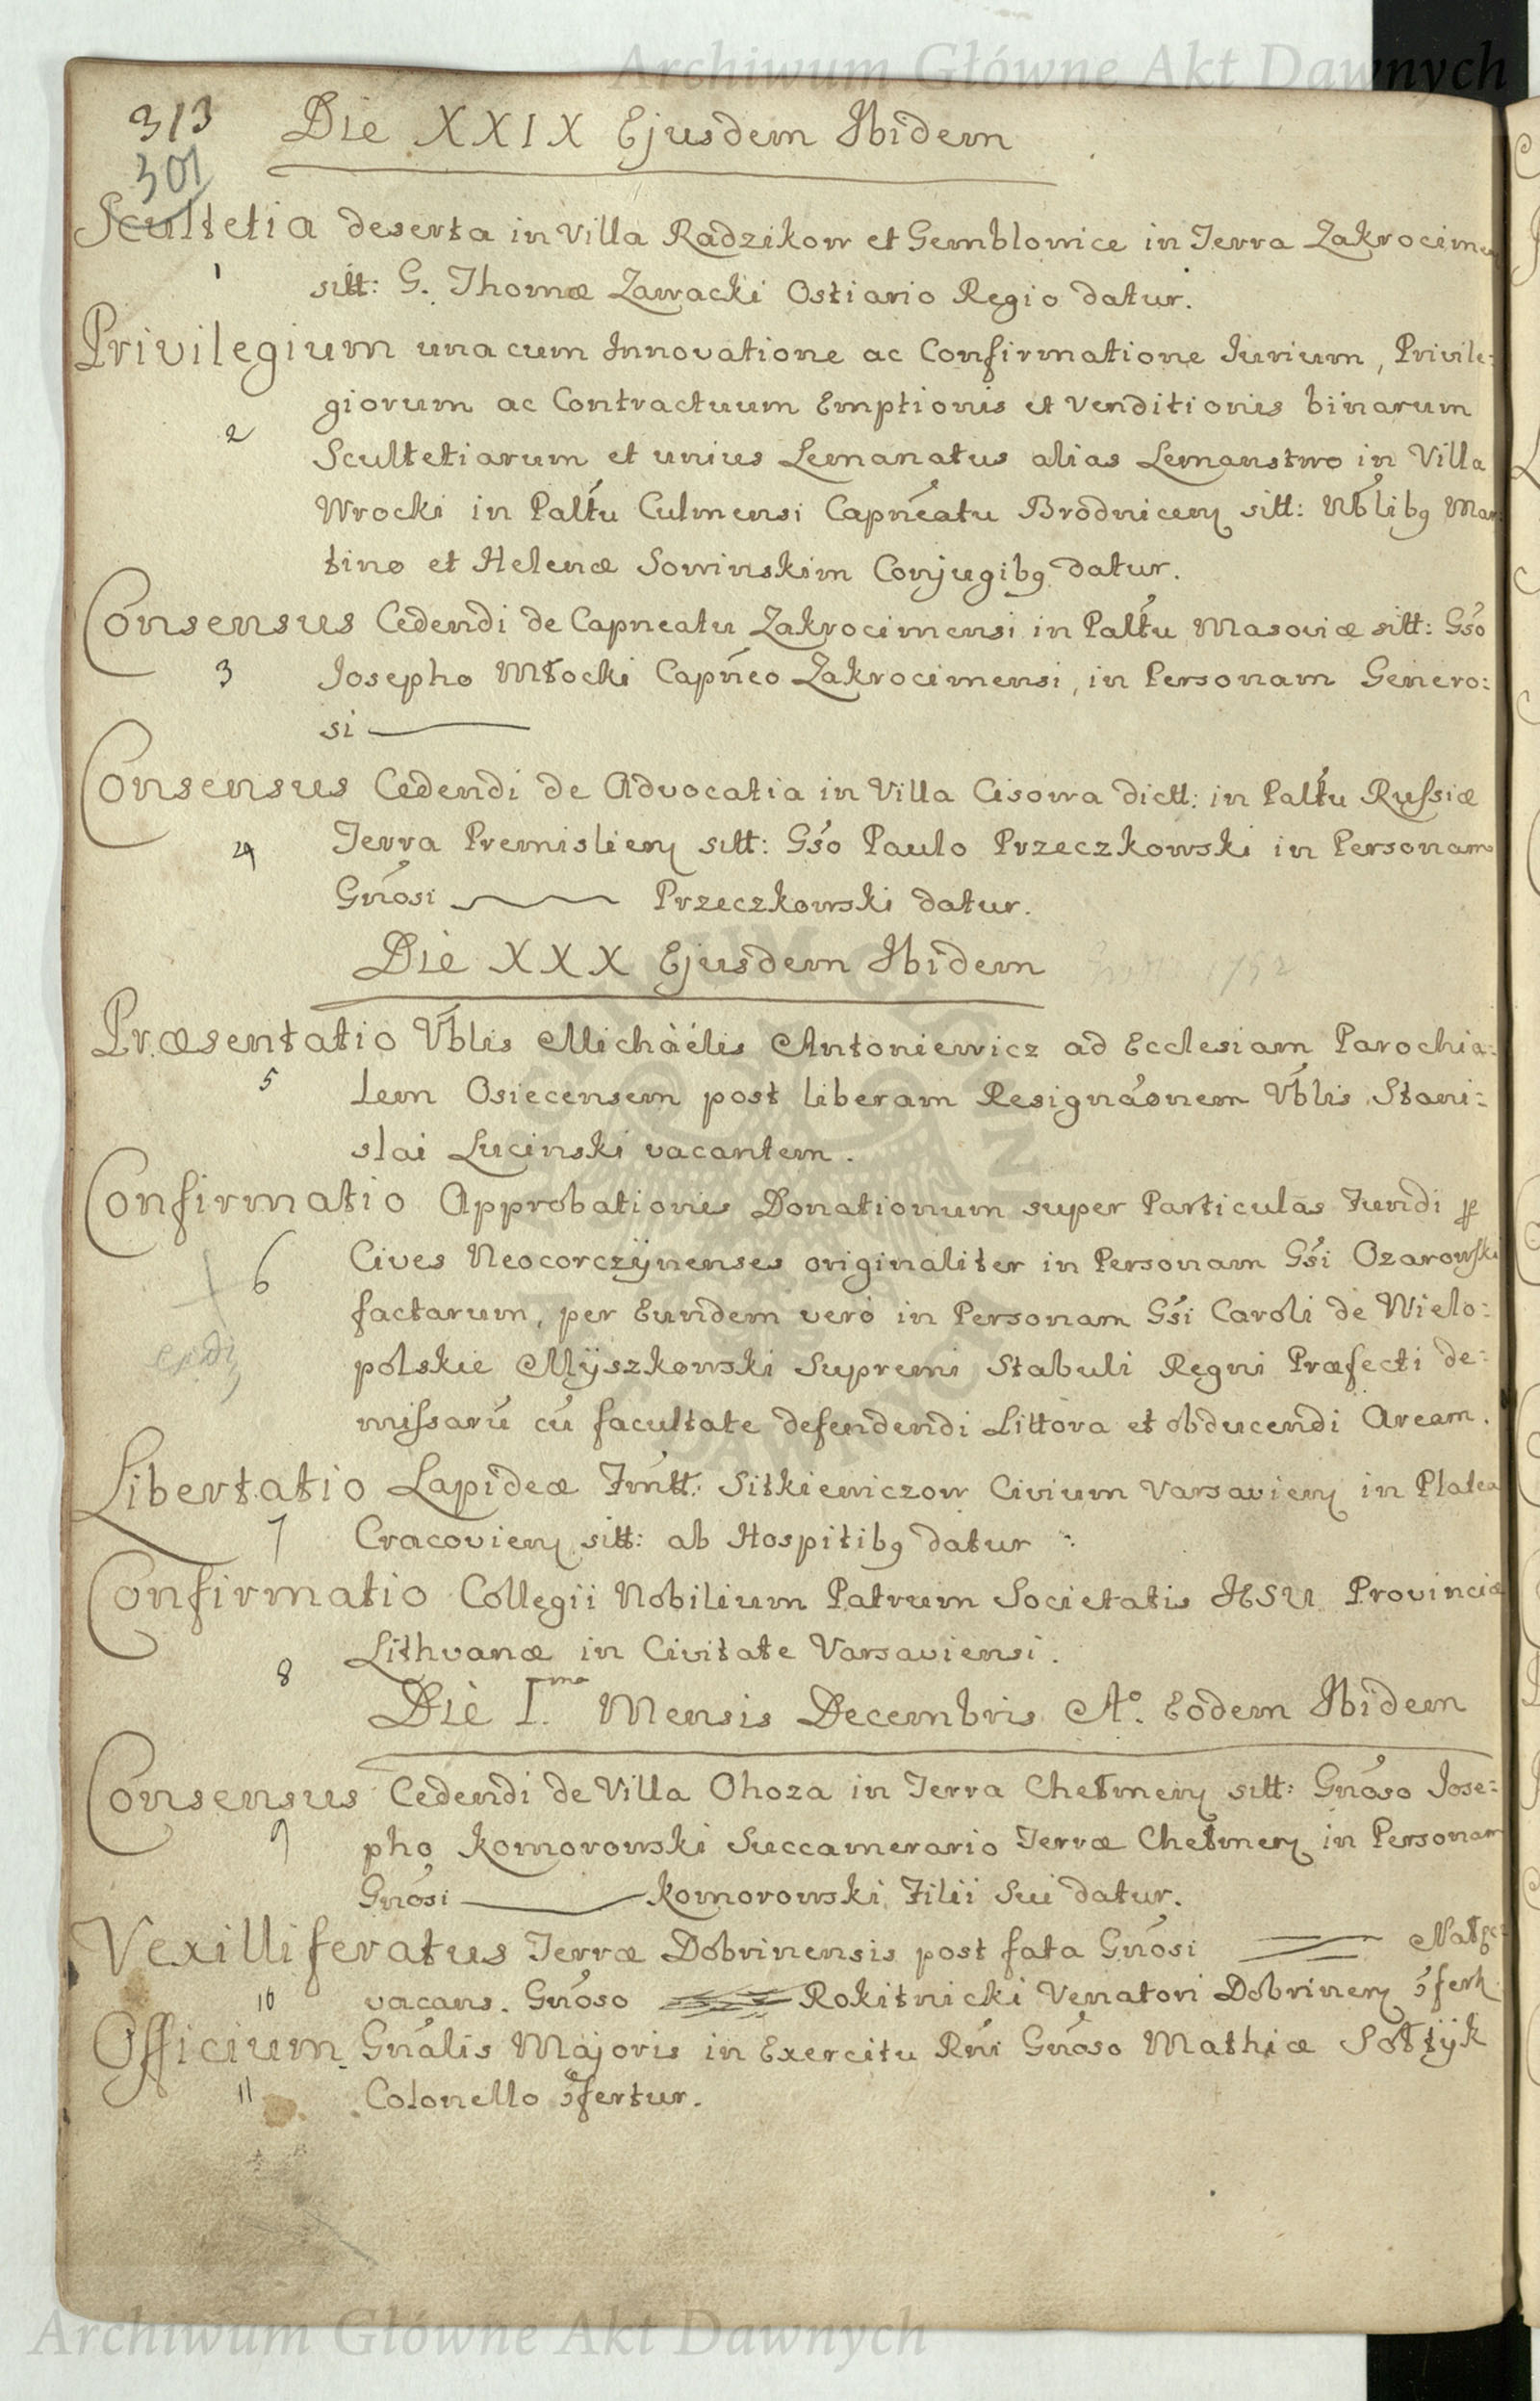 Archiwum Główne Akt Dawnych
313 Die XXIX Ejusdem Ibidem
301
Scultetia deserta in Villa Radzikow et Gemblowice in Terra Zakrocimen
1 sitt: G. Thomæ Zawacki Ostiario Regio datur.
Privilegium unacum Innovatione ac Confirmatione Iurium, Privile:
giorum ac Contractuum Emptionis et Venditionis binarum
2 Scultetiarum et unius Lemanatus alias Lemanstwo in Villa
Wrocki in Palttu Culmensi Capneatu Brodnicen sitt: Nblibg Mar:
tino et Helenæ Sowinskim Conjugibg datur.
Consensus Cedendi de Capneatu Zakrocimensi in Palttu Masoviæ sitt: Gso
3 Josepho Młocki Capneo Zakrocimensi, in Personam Genero:
si
Consensus Cedendi de Advocatia in Villa Cisowa dictt: in Palttu Russiæ
4 Terra Premislien sitt: Gso Paulo Przeczkowski in Personam
Gnosi Przeczkowski datur.
Die XXX Ejusdem Ibidem 1752
Præsentatio Vblis Michäélis Antoniewicz ad Ecclesiam Parochia:
5 lem Osiecensem post liberam Resignaonem Vblis Stani:
slai Lucinski vacantem.
Confirmatio Approbationis Donationum super Particulas Fundi p
6 Cives Neocorczÿnenses originaliter in Personam Gsi Ozarowski
factarum, per Eundem verò in Personam Gsi Caroli de Wielo:
polskie Mÿszkowski Supremi Stabuli Regni Præfecti de:
missarū cū facultate defendendi Littora et obducendi Aream.
Libertatio Lapideæ Fmtt: Sitkiewiczow Civium Varsavien in Platea
7 Cracovien sitt: ab Hospitibg datur
Confirmatio Collegii Nobilium Patrum Societatis JESU Provinciæ
8 Lithvanæ in Civitate Varsaviensi.
Die I.ma Mensis Decembris Aº. Eodem Ibidem
Consensus Cedendi de Villa Ohoza in Terra Chełmen sitt: Gnoso Jose:
9 pho Komorowski Succamerario Terræ Chełmen in Personam
Gnosi Komorowski Filii Sui datur.
Vexilliferatus Terræ Dobrinensis post fata Gnosi
10 vacans. Gnoso Rokitnicki Venatori Dobrinen
Officium Gnalis Majoris in Exercitu Rni Gnoso Mathiæ Sołtÿk
11 Colonello ɔfertur.
Archiwum Główne Akt Dawnych